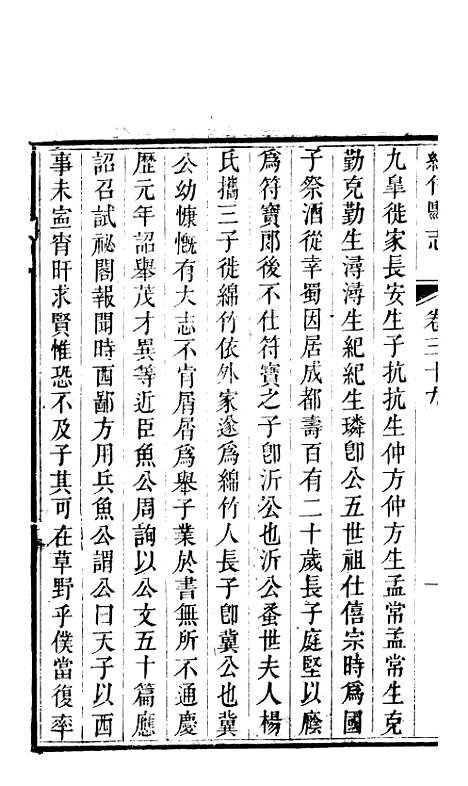 綿竹縣志
卷三十九
一
九皐徙家長安生子抗抗生仲方仲方生孟常孟常生克
勤克勤生潯潯生紀紀生璘卽公五世祖仕僖宗時爲國
子祭酒從幸蜀因居成都壽百有二十歲長子庭堅以廕
爲符寶郎後不仕符寶之子卽沂公也沂公蚤世夫人楊
氏攜三子徙綿竹依外家遂爲綿竹人長子卽冀公也冀
公幼慷慨有大志不肯屑屑爲舉子業於書無所不通慶
歷元年詔舉茂才異等近臣魚公周詢以公文五十篇應
詔召試祕閣報聞時西鄙方用兵魚公謂公曰天子以西
事未寍宵旰求賢惟恐不及子其可在草野乎僕當復率